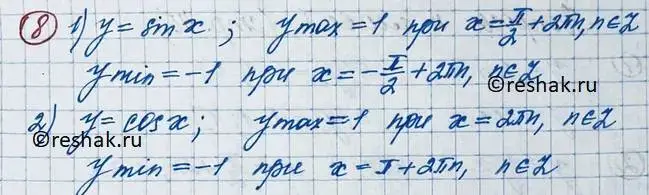 8 1) y = sin x ; y max = 1 при x = π/2 + 2πn, n∈Z
y min = -1 при x = -π/2 + 2πn, n∈Z
©reshak.ru
2) y = cos x ; y max = 1 при x = 2πn, n∈Z
©reshak.ru ©reshak.ru
y min = -1 при x = π + 2πn, n∈Z